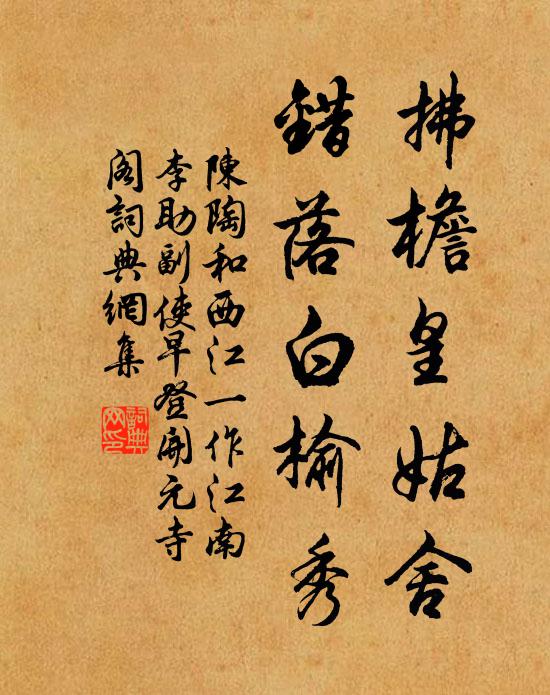 拂檐皇姑舍
錯落白榆秀
陳陶和西江一作江南
李助副使早登開元寺
閣詞典網集
詞典
网印